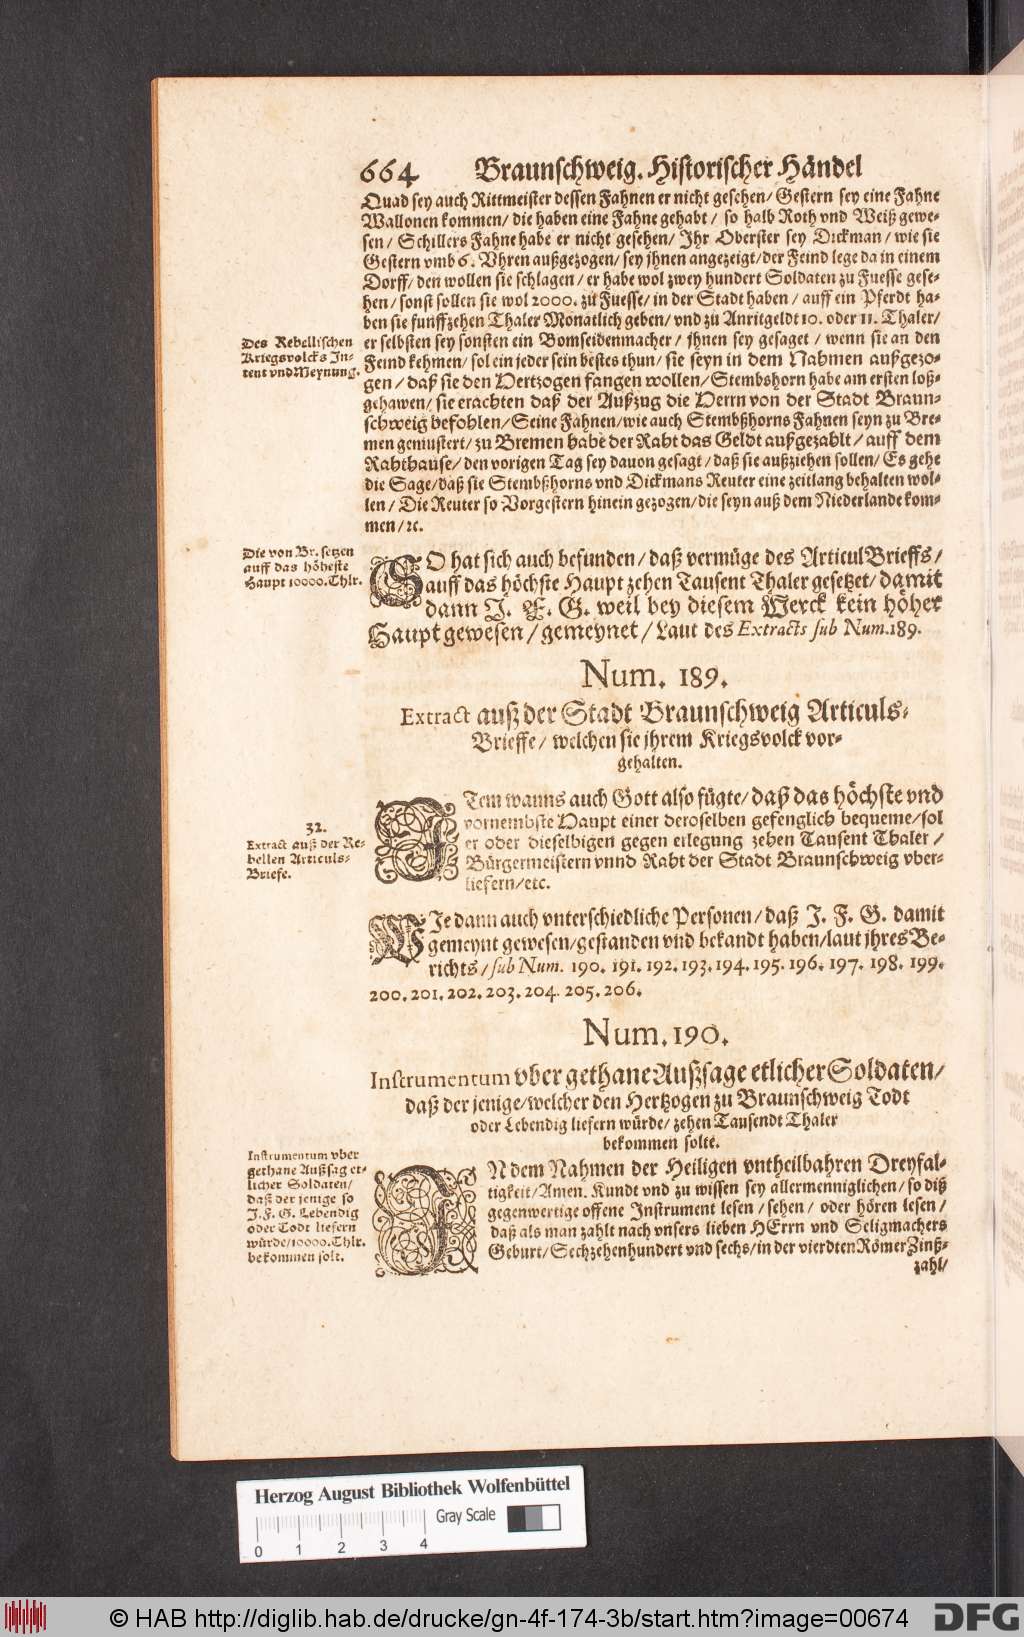 664 Braunschweig. Historischer Händel
Quad sey auch Rittmeister dessen Fahnen er nicht gesehen/ Gestern sey eine Fahne
Wallonen kommen/ die haben eine Fahne gehabt/ so halb Roth vnd Weiß gewe-
sen/ Schillers Fahne habe er nicht gesehen/ Ihr Oberster sey Dickman/ wie sie
Gestern vmb 6. Vhren außgezogen/ sey jhnen angezeigt/ der Feind lege da in einem
Dorff/ den wollen sie schlagen/ er habe wol zwey hundert Soldaten zu Fuesse gese-
hen/ sonst sollen sie wol 2000. zu Fuesse/ in der Stadt haben/ auff ein Pferdt ha-
ben sie funffzehen Thaler Monatlich geben/ vnd zu Anritgeldt 10. oder 11. Thaler/
er selbsten sey sonsten ein Bomseidenmacher/ jhnen sey gesaget/ wenn sie an den
Feind kehmen/ sol ein jeder sein bestes thun/ sie seyn in dem Nahmen außgezo-
gen/ daß sie den Hertzogen fangen wollen/ Stembshorn habe am ersten loß-
gehawen/ sie erachten daß der Außzug die Herrn von der Stadt Braun-
schweig befohlen/ Seine Fahnen/ wie auch Stembßhorns Fahnen seyn zu Bre-
men gemustert/ zu Bremen habe der Raht das Geldt außgezahlt/ auff dem
Rahthause/ den vorigen Tag sey dauon gesagt/ daß sie außziehen sollen/ Es gehe
die Sage/ daß sie Stembßhorns vnd Dickmans Reuter eine zeitlang behalten wol-
len/ Die Reuter so Vorgestern hinein gezogen/ die seyn auß dem Niederlande kom-
men/ ꝛc.
Des Rebellischen
Kriegsvolcks In-
tent vnd Meynung.
Die von Br. setzen
auff das höheste
Haupt 10000. Thlr.
SO hat sich auch befunden/ daß vermüge des Articul Brieffs/
auff das höchste Haupt zehen Tausent Thaler gesetzet/ damit
dann J. F. G. weil bey diesem Werck kein höher
Haupt gewesen/ gemeynet/ Laut des Extracts sub Num. 189.
Num. 189.
Extract auß der Stadt Braunschweig Articuls-
Brieffe/ welchen sie jhrem Kriegsvolck vor-
gehalten.
32.
Extract auß der Re-
bellen Articuls-
Briefe.
ITem wanns auch Gott also fügte/ daß das höchste vnd
vornembste Haupt einer deroselben gefenglich bequeme/ sol
er oder dieselbigen gegen erlegung zehen Tausent Thaler/
Bürgermeistern vnnd Raht der Stadt Braunschweig vber-
liefern/ etc.
WIe dann auch vnterschiedliche Personen/ daß J. F. G. damit
gemeynt gewesen/ gestanden vnd bekandt haben/ laut jhres Be-
richts/ sub Num. 190. 191. 192. 193. 194. 195. 196. 197. 198. 199.
200. 201. 202. 203. 204. 205. 206.
Num. 190.
Instrumentum vber gethane Außsage etlicher Soldaten/
daß der jenige/ welcher den Hertzogen zu Braunschweig Todt
oder Lebendig liefern würde/ zehen Tausendt Thaler
bekommen solte.
Instrumentum vber
gethane Außsag et-
licher Soldaten/
daß der jenige so
J. F. G. Lebendig
oder Todt liefern
würde/ 10000. Thlr.
bekommen solt.
IN dem Nahmen der Heiligen vntheilbahren Dreyfal-
tigkeit/ Amen. Kundt vnd zu wissen sey allermenniglichen/ so diß
gegenwertige offene Instrument lesen/ sehen/ oder hören lesen/
daß als man zahlt nach vnsers lieben HErrn vnd Seligmachers
Geburt/ Sechzehenhundert vnd sechs/ in der vierdten Römer Zinß-
zahl/
Herzog August Bibliothek Wolfenbüttel
Gray Scale
0 1 2 3 4
© HAB http://diglib.hab.de/drucke/gn-4f-174-3b/start.htm?image=00674
DFG